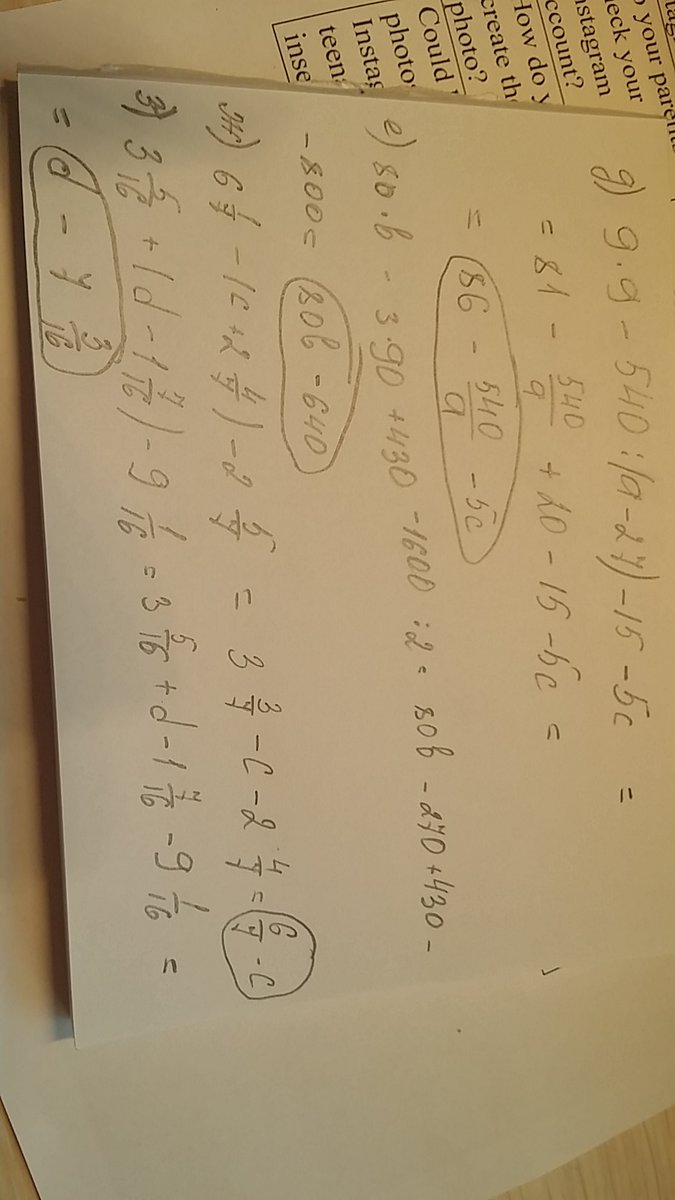 your
your
account?
How do
create
photo?
Could
photo
Instag
teen
inse
g) 9·9 - 540 : (a - 27) - 15 - 5c =
= 81 - 540/a + 20 - 15 - 5c =
= 86 - 540/a - 5c
е) 80·b - 3·90 + 430 - 1600 : 2 = 80b - 270 + 430 -
- 800 = 80b - 640
ж) 6 1/7 - (c + 2 4/7) - 2 5/7 = 3 3/7 - c - 2 4/7 = 6/7 - c
з) 3 5/16 + (d - 1 7/16) - 9 1/16 = 3 5/16 + d - 1 7/16 - 9 1/16 =
= d - 7 3/16